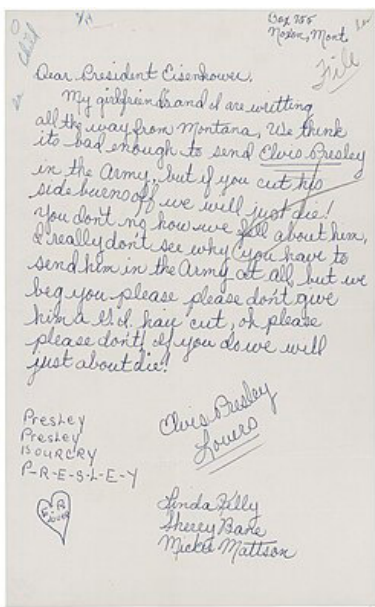 Box 755
Noxon, Mont.
File
Dear President Eisenhower,
My girlfriend's and I are writting
all the way from Montana, We think
its bad enough to send Elvis Presley
in the Army, but if you cut his
side burns off we will just die!
You don't no how we fell about him,
I really don't see why you have to
send him in the Army at all, but we
beg you please please don't give
him a G.I. hair cut, oh please
please don't! If you do we will
just about die!
Elvis Presley
Lovers
Presley
Presley
IS OUR CRY
P-R-E-S-L-E-Y
Linda Kelly
Sherry Bane
Mickie Mattson